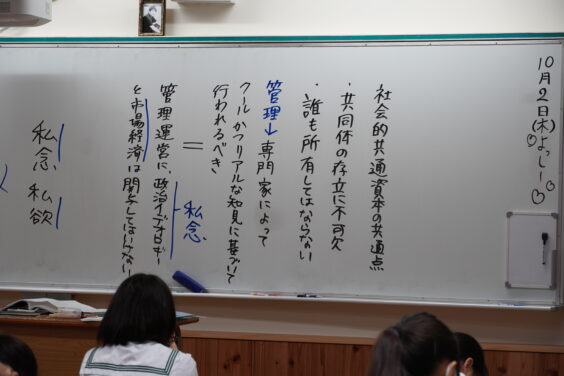 10月2日(木)よっしー
社会的共通資本の共通点
・共同体の存立に不可欠
・誰も所有してはならない
管理→専門家によって
クールかつリアルな知見に基づいて
行われるべき
＝
私念
管理運営に、政治イデオロギー
と市場経済は関与してはいけない
私念、私欲